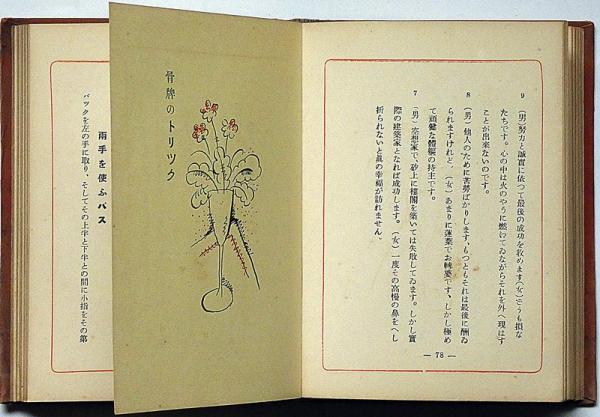 9
(男)努力と誠實に依つて最後の成功を收めます(女)どうも損な
たちです。心の中は火のやうに燃けてゐながらそれを外へ現はす
ことが出來ないのです。
8
(男)他人のために苦勞ばかりします、もつともそれは最後に酬ゐ
られますけれど、(女)あまりに蓮葉でお轉婆です、しかし極め
て頑健な體軀の持主です。
7
(男)空想家で、砂上に樓閣を築いては失敗してゐます。しかし實
際の建築家となれば成功します。(女)一度その高慢の鼻をへし
折られないと眞の幸福が訪れません、
— 78 —
骨牌のトリック
兩手を使ふパス
パックを左の手に取り、そしてその上半と下半との間に小指をその第